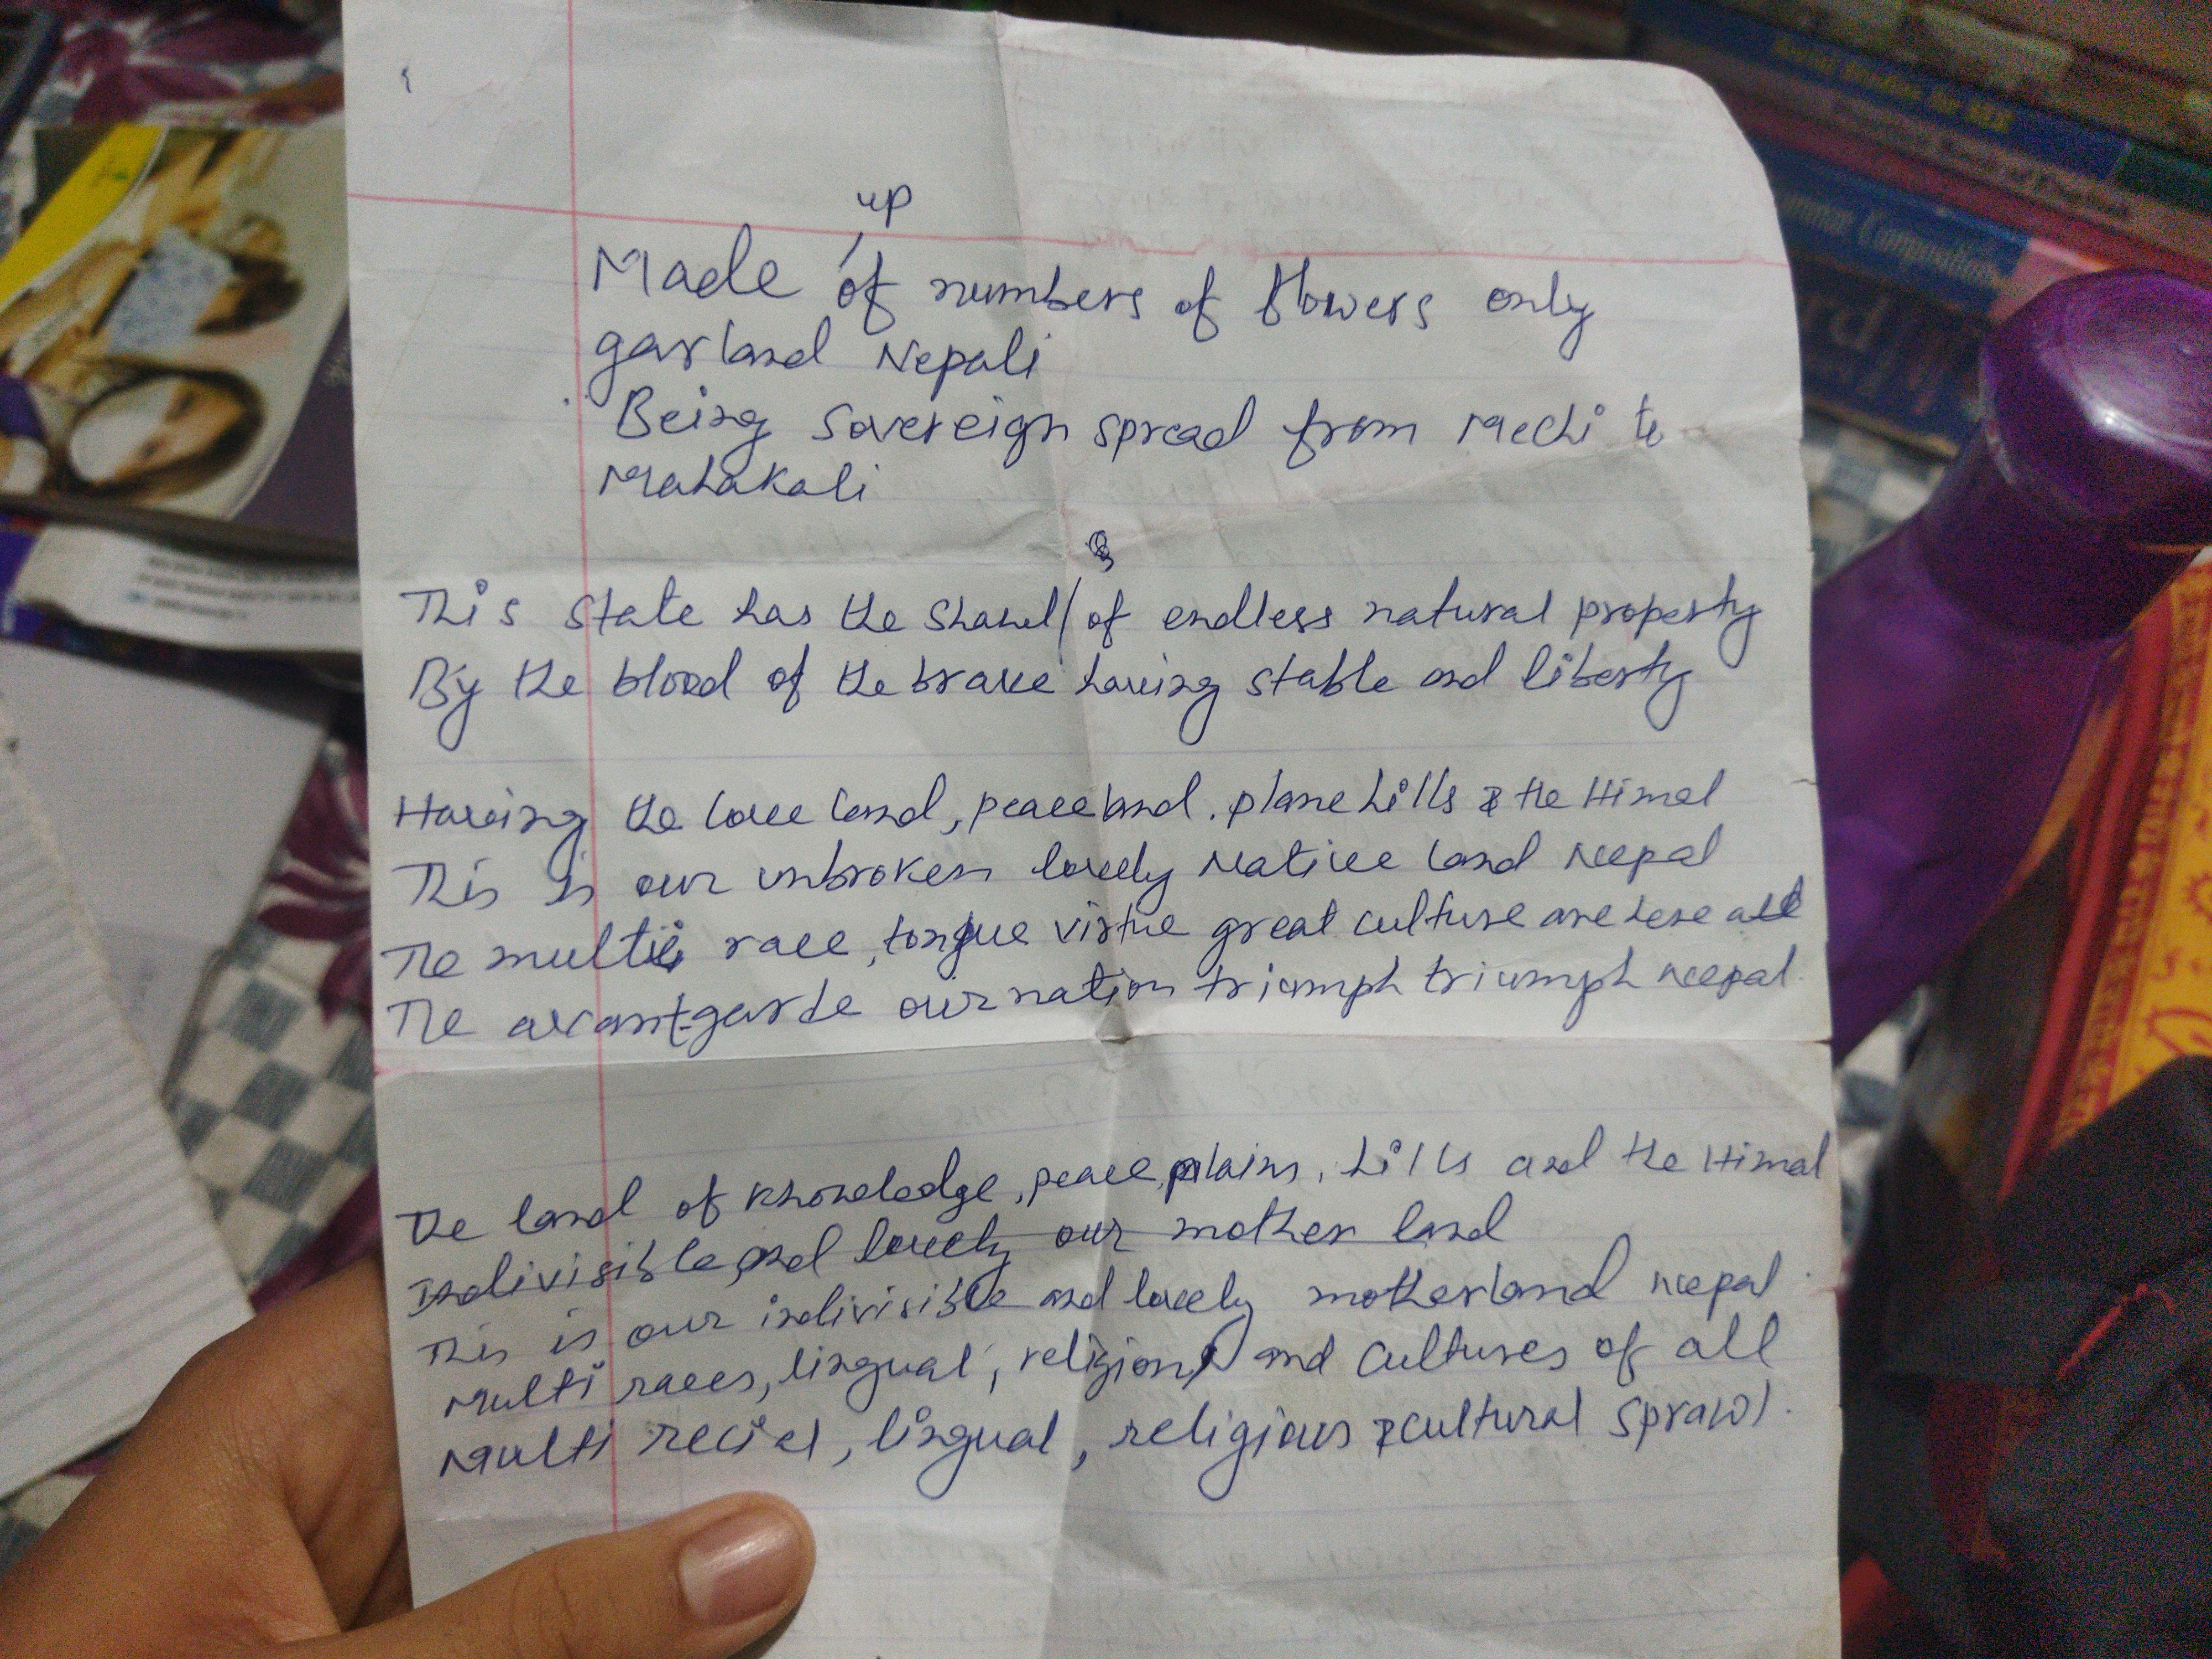 up
Made of numbers of flowers only
garland Nepali
Being Sovereign spread from Mechi to
Mahakali
This state has the shawl of endless natural property
By the blood of the brave having stable and liberty
Having the love land, peace land, plane hills & the Himal
This is our unbroken lovely Native land Nepal
The multi race, tongue virtue great culture are here all
The avant-garde our nation triumph triumph Nepal
The land of knowledge, peace, plains, hills and the Himal
Indivisible and lovely our mother land
This is our indivisible and lovely motherland Nepal
Multi races, lingual, religion and cultures of all
Multi recial, lingual, religious & cultural sprawl.
Composition